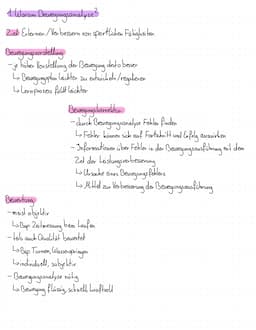 1. Warum Bewegungsanalyse?
Ziel: Erlernen/Verbessern von sportlichen Fähigkeiten
Bewegungsvorstellung
- je höher Vorstellung der Bewegung desto besser
↳ Bewegungsplan leichter zu entwickeln/regulieren
↳ Lernprozess fällt leichter
Bewegungskorrektur
- durch Bewegungsanalyse Fehler finden
↳ Fehler können sich auf Fortschritt und Erfolg auswirken
- Informationen über Fehler in der Bewegungsausführung mit dem
Ziel der Leistungsverbesserung
↳ Ursache eines Bewegungsfehlers
↳ Mittel zur Verbesserung der Bewegungsausführung
Bewertung
- meist objektiv
↳ Bsp. Zeitmessung beim Laufen
- teils auch Qualität bewertet
↳ Bsp. Turnen, Wasserspringen
↳ individuell, subjektiv
- Bewegungsanalyse nötig
↳ Bewegung flüssig, schnell, kraftvoll